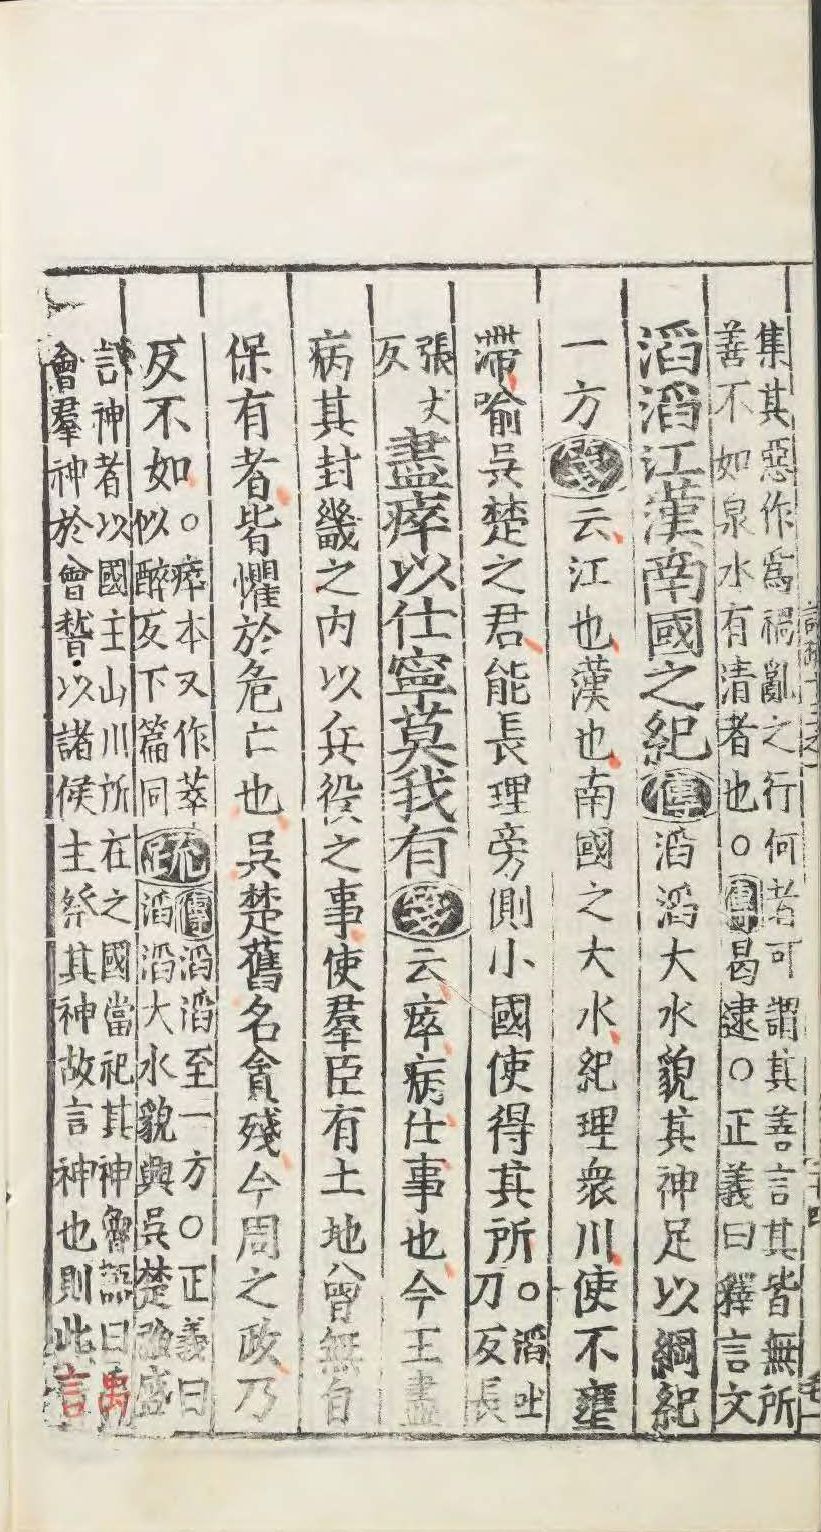 集其惡作爲禍亂之行何者可謂其善言其皆無所
善不如泉水有清者也○傳曷逮○正義曰釋言文
滔滔江漢南國之紀傳滔滔大水貌其神足以綱紀
一方箋云江也漢也南國之大水紀理衆川使不壅
滯喻吳楚之君能長理旁側小國使得其所○滔吐
刀反長
張丈
反
盡瘁以仕寧莫我有箋云瘁病仕事也今王盡
病其封畿之内以兵役之事使羣臣有土地曾無自
保有者皆懼於危亡也吳楚舊名貪殘今周之政乃
反不如○瘁本又作萃
似醉反下篇同
疏傳滔滔至一方○正義曰
滔滔大水貌與吳楚強盛
言神者以國主山川所在之國當祀其神魯語曰禹
會羣神於會稽以諸侯主祭其神故言神也則此言